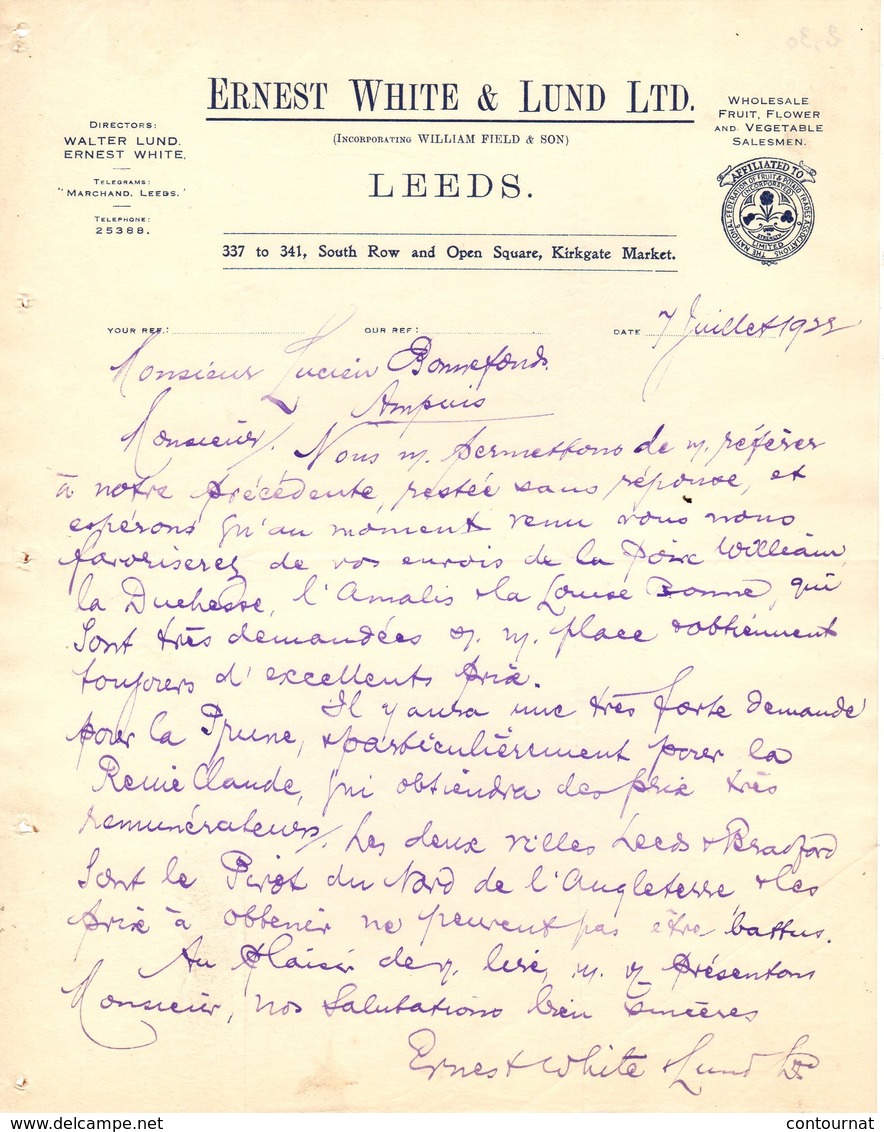 ERNEST WHITE & LUND LTD.
(INCORPORATING WILLIAM FIELD & SON)
LEEDS.
337 to 341, South Row and Open Square, Kirkgate Market.
DIRECTORS:
WALTER LUND.
ERNEST WHITE.
TELEGRAMS:
"MARCHAND, LEEDS."
TELEPHONE:
25388.
WHOLESALE
FRUIT, FLOWER
AND VEGETABLE
SALESMEN.
AFFILIATED TO
THE NATIONAL FEDERATION OF FRUIT & POTATO TRADES ASSOCIATIONS
(INCORPORATED)
LIMITED
YOUR REF.: OUR REF: DATE 7 Juillet 1922
Monsieur Lucien Bonnefonds.
Ampuis
Monsieur, Nous n. permettons de v. référer
à notre précédente, restée sans réponse, et
espérons qu'au moment venu vous nous
favoriserez de vos envois de la Poire William,
la Duchesse, l'Amalis & la Louise Bonne, qui
sont très demandées s. n. place & obtiennent
toujours d'excellents prix.
Il y aura une très forte demande
pour la Prune, & particulièrement pour la
Reine Claude, qui obtiendra des prix très
remunérateurs. Les deux villes Leeds & Bradford
sont le Pivot du Nord de l'Angleterre, & les
prix à obtenir ne peuvent pas être battus.
Au plaisir de v. lire, n. v. présentons
Monsieur, nos salutations bien sincères
Ernest White & Lund Ltd
www.delcampe.net
contournat